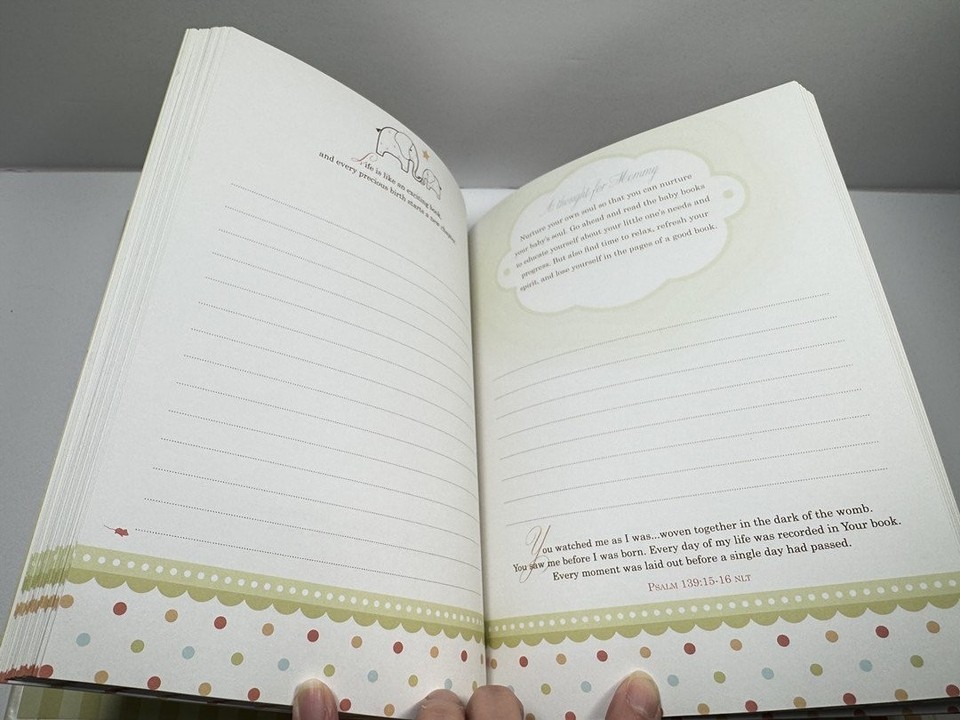 Life is like an exciting book,
and every precious birth starts a new chapter.
A thought for Mommy
Nurture your own soul so that you can nurture
your baby's soul. Go ahead and read the baby books
to educate yourself about your little one's needs and
progress. But also find time to relax, refresh your
spirit, and lose yourself in the pages of a good book.
You watched me as I was...woven together in the dark of the womb.
You saw me before I was born. Every day of my life was recorded in Your book.
Every moment was laid out before a single day had passed.
PSALM 139:15-16 NLT